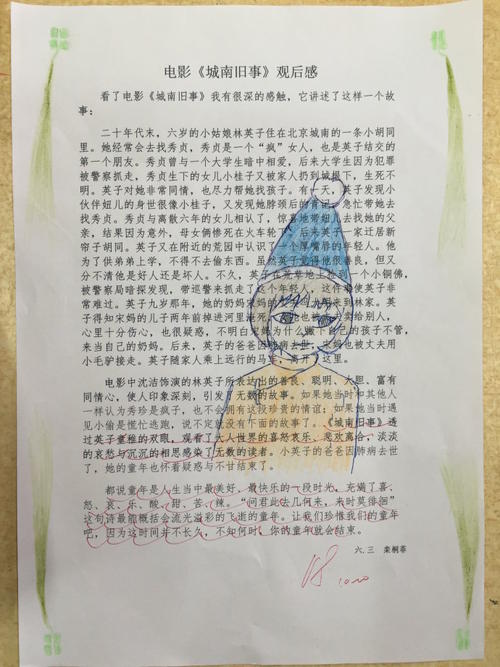 电影《城南旧事》观后感
看了电影《城南旧事》我有很深的感触，它讲述了这样一个故
事：
二十年代末，六岁的小姑娘林英子住在北京城南的一条小胡同
里。她经常会去找秀贞，秀贞是一个“疯”女人，也是英子结交的
第一个朋友。秀贞曾与一个大学生暗中相爱，后来大学生因为犯罪
被警察抓走，秀贞生下的女儿小桂子又被家人扔到城根下，生死不
明。英子对她非常同情，也尽力帮她找孩子。有一天，英子发现小
伙伴妞儿的身世很像小桂子，又发现她脖颈后的青记，急忙带她去
找秀贞。秀贞与离散六年的女儿相认了，惊喜地带妞儿去找她的父
亲，结果因为意外，母女俩惨死在火车轮下。后来英子一家迁居新
帘子胡同。英子又在附近的荒园中认识了一个厚嘴唇的年轻人。他
为了供弟弟上学，不得不去偷东西。虽然英子觉得他很善良，但又
分不清他是好人还是坏人。不久，英子在荒草地上捡到一个小铜佛，
被警察局暗探发现，带巡警来抓走了这个年轻人，这件事使英子非
常难过。英子九岁那年，她的奶妈宋妈的丈夫冯大明来到林家。英
子得知宋妈的儿子两年前掉进河里淹死，女儿也被他卖给别人，
心里十分伤心，也很疑惑，不明白宋妈为什么撇下自己的孩子不管，
来当自己的奶妈。后来，英子的爸爸因肺病去世，宋妈也被丈夫用
小毛驴接走。英子随家人乘上远行的马车，离开了这里。
电影中沈洁饰演的林英子所表达出的善良、聪明、大胆、富有
同情心，使人印象深刻，引发了无数的故事。如果她当时和其他人
一样认为秀珍是疯子，也不会拥有这段珍贵的情谊；如果她当时遇
见小偷是慌忙逃跑，说不定就没有下面的故事了。《城南旧事》透
过英子童稚的双眼，观看了大人世界的喜怒哀乐、悲欢离合，淡淡
的哀愁与沉沉的相思感染了无数的读者。小英子的爸爸因肺病去世
了，她的童年也怀着疑惑与不甘结束了。
都说童年是人生当中最美好、最快乐的一段时光，充满了喜、
怒、哀、乐、酸、甜、苦、辣。“问君此去几何来，来时莫徘徊”
这句诗最能概括会流光溢彩的飞逝的童年。让我们珍惜我们的童年
吧，因为这时间并不长久，不知何时，你的童年就会结束。
六.三 栾桐菲
10.20